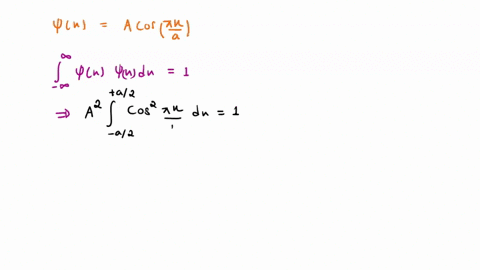 ψ(x) = A Cos(πx/a)
∫_{-∞}^{∞} ψ(x) ψ(x) dx = 1
⇒ A² ∫_{-a/2}^{+a/2} Cos² πx/, dx = 1